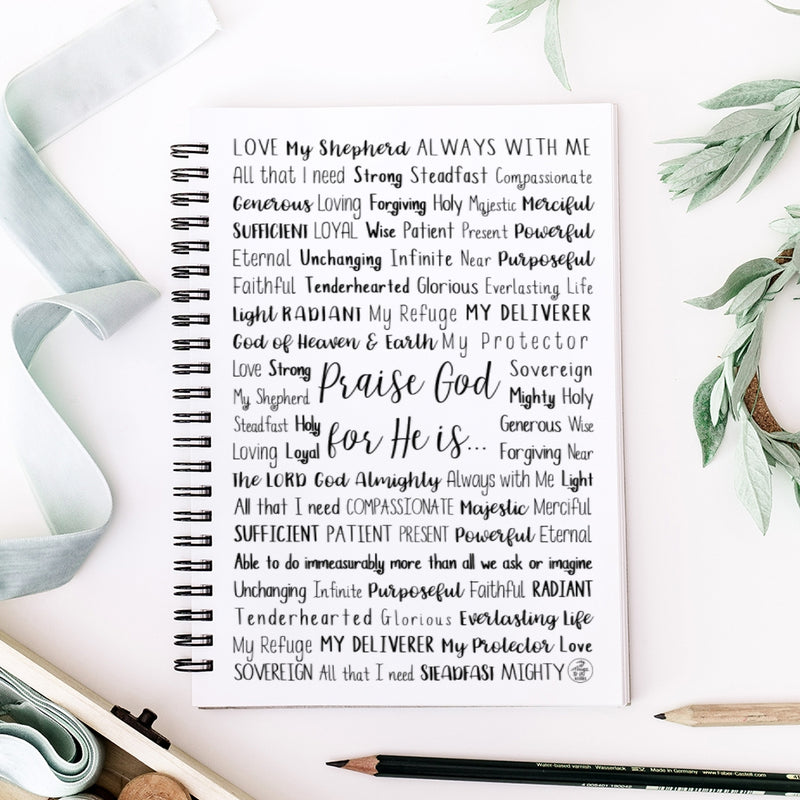 LOVE My Shepherd ALWAYS WITH ME
All that I need Strong Steadfast Compassionate
Generous Loving Forgiving Holy Majestic Merciful
SUFFICIENT LOYAL Wise Patient Present Powerful
Eternal Unchanging Infinite Near Purposeful
Faithful Tenderhearted Glorious Everlasting Life
Light RADIANT My Refuge MY DELIVERER
God of Heaven & Earth My Protector
Love Strong
My Shepherd
Steadfast Holy
Loving Loyal
Praise God
for He is...
Sovereign
Mighty Holy
Generous Wise
Forgiving Near
The LORD God Almighty Always with Me Light
All that I need COMPASSIONATE Majestic Merciful
SUFFICIENT PATIENT PRESENT Powerful Eternal
Able to do immeasurably more than all we ask or imagine
Unchanging Infinite Purposeful Faithful RADIANT
Tenderhearted Glorious Everlasting Life
My Refuge MY DELIVERER My Protector Love
SOVEREIGN All that I need STEADFAST MIGHTY
Water-based varnish Wasserlack Made in Germany www.Faber-Castell.com